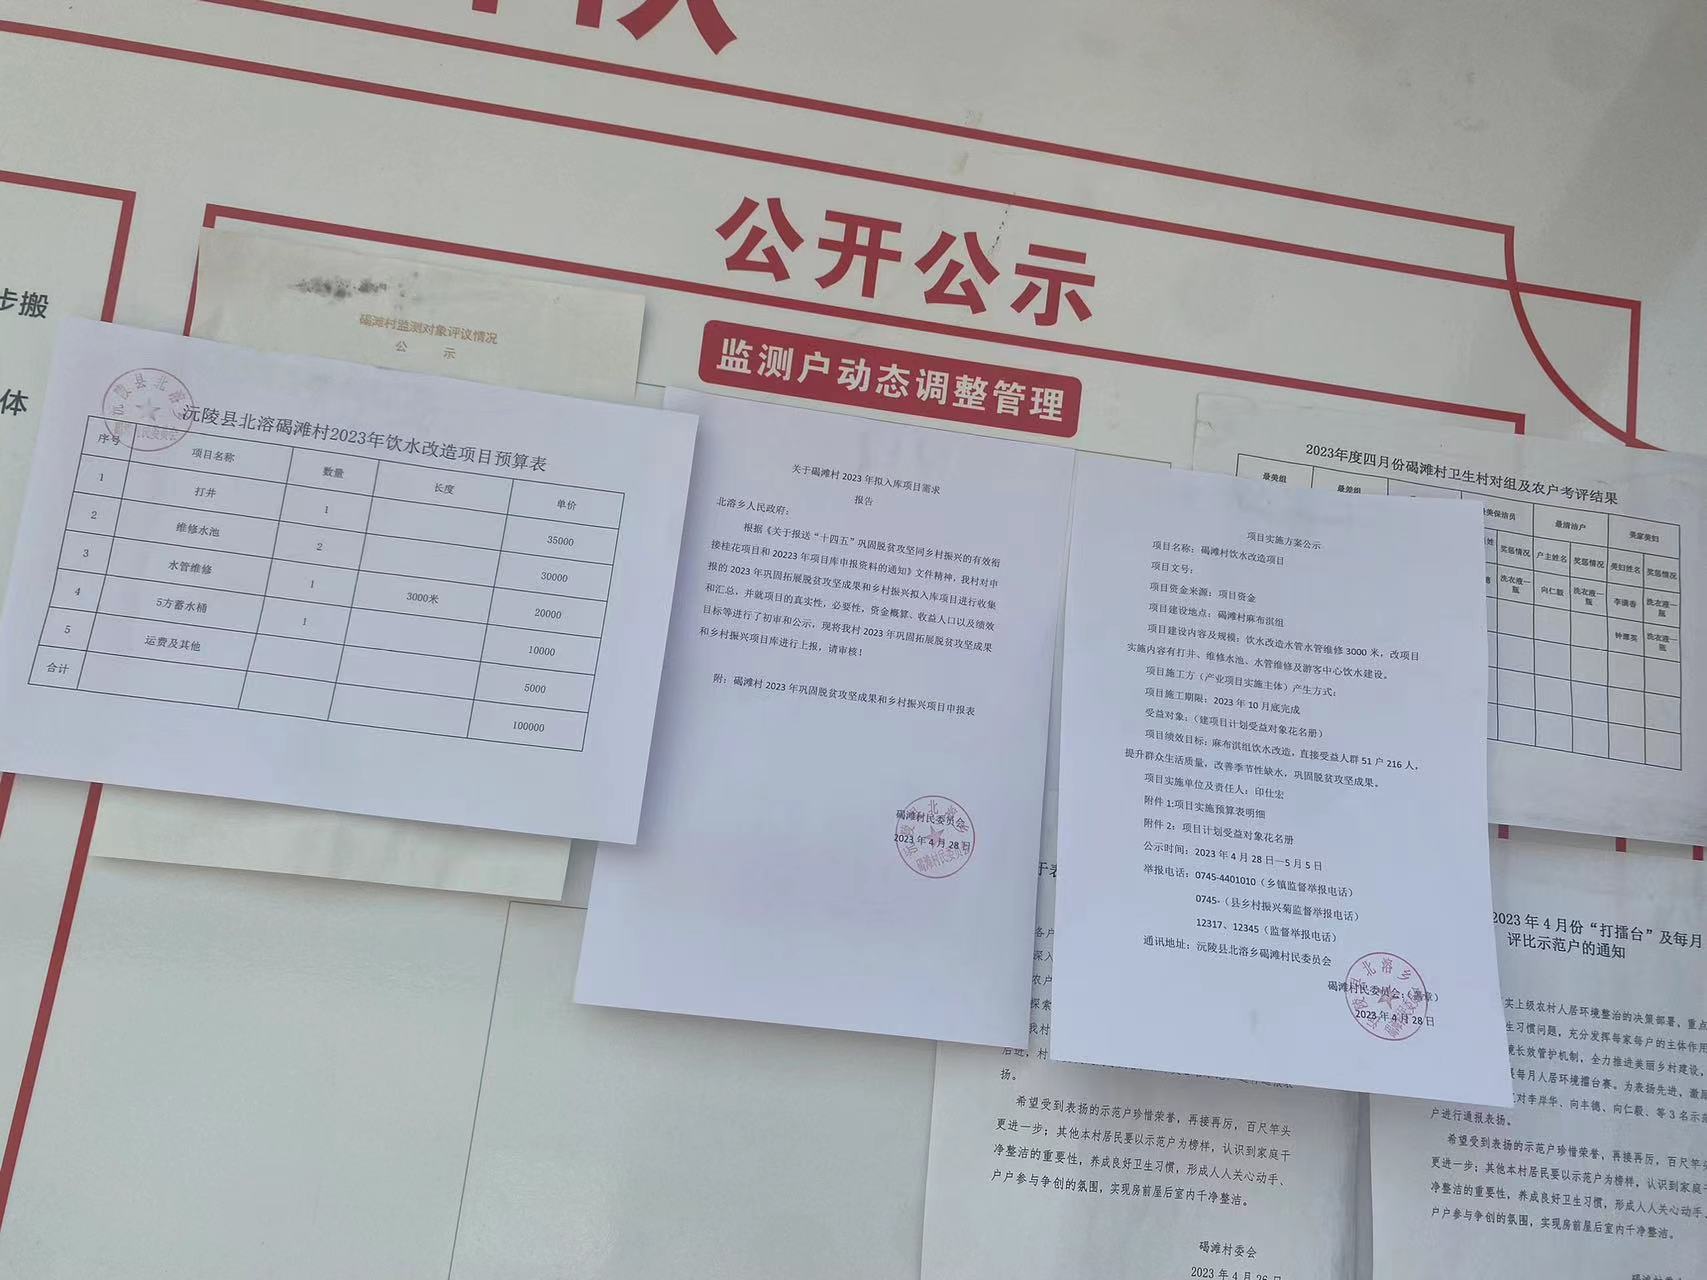 公开公示
监测户动态调整管理
步搬
体
碣滩村监测对象评议情况
公 示
沅陵县北溶碣滩村2023年饮水改造项目预算表
序号 项目名称 数量 长度 单价
1 打井 1 35000
2 维修水池 2 30000
3 水管维修 1 3000米 20000
4 5方蓄水桶 1 10000
5 运费及其他 5000
合计 100000
关于碣滩村 2023 年拟入库项目需求
报告
北溶乡人民政府：
根据《关于报送“十四五”巩固脱贫攻坚同乡村振兴的有效衔
接桂花项目和 20223 年项目库申报资料的通知》文件精神，我村对申
报的 2023 年巩固拓展脱贫攻坚成果和乡村振兴拟入库项目进行收集
和汇总，并就项目的真实性，必要性，资金概算、收益人口以及绩效
目标等进行了初审和公示，现将我村 2023 年巩固拓展脱贫攻坚成果
和乡村振兴项目库进行上报，请审核！
附：碣滩村 2023 年巩固脱贫攻坚成果和乡村振兴项目申报表
碣滩村民委员会
2023 年 4 月 28 日
项目实施方案公示
项目名称：碣滩村饮水改造项目
项目文号：
项目资金来源：项目资金
项目建设地点：碣滩村麻布淇组
项目建设内容及规模：饮水改造水管水管维修 3000 米，改项目
实施内容有打井、维修水池、水管维修及游客中心饮水建设。
项目施工方（产业项目实施主体）产生方式：
项目施工期限：2023 年 10 月底完成
受益对象：（建项目计划受益对象花名册）
项目绩效目标：麻布淇组饮水改造，直接受益人群 51 户 216 人，
提升群众生活质量，改善季节性缺水，巩固脱贫攻坚成果。
项目实施单位及责任人：印仕宏
附件 1:项目实施预算表明细
附件 2：项目计划受益对象花名册
公示时间：2023 年 4 月 28 日—5 月 5 日
举报电话：0745-4401010（乡镇监督举报电话）
0745-（县乡村振兴菊监督举报电话）
12317、12345（监督举报电话）
通讯地址：沅陵县北溶乡碣滩村民委员会
碣滩村民委员会：（盖章）
2023 年 4 月 28 日
2023年度四月份碣滩村卫生村对组及农户考评结果
最美组 最差组 最美保洁员 最清洁户 美家美妇
奖惩情况 户主姓名 奖惩情况 美妇姓名 奖惩情况
洗衣液一瓶 向仁毅 洗衣液一瓶 李满香 洗衣液一瓶
洗衣液一瓶
扬。
希望受到表扬的示范户珍惜荣誉，再接再厉，百尺竿头
更进一步；其他本村居民要以示范户为榜样，认识到家庭干
净整洁的重要性，养成良好卫生习惯，形成人人关心动手、
户户参与争创的氛围，实现房前屋后室内干净整洁。
碣滩村委会
2023 年 4 月 26 日
2023 年 4 月份“打擂台”及每月
评比示范户的通知
实上级农村人居环境整治的决策部署，重点
生习惯问题，充分发挥每家每户的主体作用
长效管护机制，全力推进美丽乡村建设，
每月人居环境擂台赛。为表扬先进，激励
对李岸华、向丰德、向仁毅、等 3 名示范
户进行通报表扬。
希望受到表扬的示范户珍惜荣誉，再接再厉，百尺竿头
更进一步；其他本村居民要以示范户为榜样，认识到家庭干
净整洁的重要性，养成良好卫生习惯，形成人人关心动手、
户户参与争创的氛围，实现房前屋后室内干净整洁。